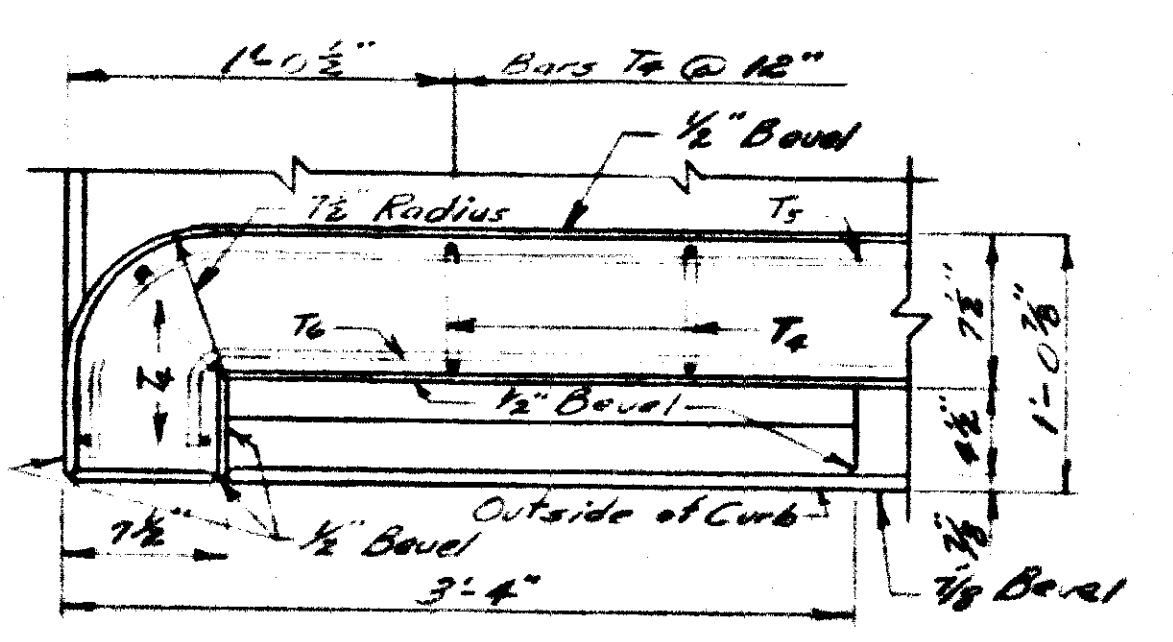 1'-0½"
Bars T4 @ 12"
½" Bevel
7½" Radius
T5
T6
T4
T4
½" Bevel
7½"
4½"
1'-0⅞"
Outside of Curb
7½"
½" Bevel
⅞"
⅞ Bevel
3'-4"